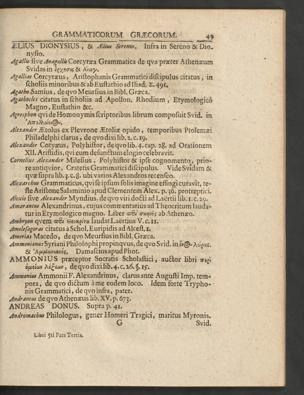 GRAMMATICORUM GRÆCORUM. 49
ÆLIUS DIONYSIUS, & Ælius Serenus. Infra in Sereno & Dio-
nysio.
Agallis sive Anagallis Corcyræa Grammatica de qva præter Athenæum
Svidas in
Agallias Corcyræus, Aristophanis Grammatici discipulus citatus, in
scholiis minoribus & ab Eustathio ad Iliad. Σ. 491.
Agatho Samius, de qvo Meursius in Bibl. Græca.
Agathocles citatus in scholiis ad Apollon. Rhodium, Etymologico
Magno, Eustathio &c.
Agresphon qvi de Homonymis scriptoribus librum composuit Svid. in
Alexander Ætolus ex Plevrone Ætoliæ opido, temporibus Ptolemæi
Philadelphi clarus, de qvo dixi lib. 2. c. 19.
Alexander Cotyæus, Polyhistor, de qvo lib. 4. cap. 28. ad Orationem
XII. Aristidis, qvi eum defunctum elogio celebravit.
Cornelius Alexander Milesius, Polyhistor & ipse cognomento, prio-
re antiqvior, Cratetis Grammatici discipulus. Vide Svidam &
qvæ supra lib. 3. c. 8. ubi varios Alexandros recenseo.
Alexarchus Grammaticus, qvi se ipsum solis imagine effingi curavit, te-
ste Aristone Salaminio apud Clementem Alex. p. 36. protreptici.
Alexis sive Alexander Myndius, de qvo viri docti ad Laertii lib. 1. c. 29.
Amaranthus Alexandrinus, cujus commentarius ad Theocritum lauda-
tur in Etymologico magno. Liber περὶ σκηνῆς ab Athenæo.
Ambryon quem περὶ θεοκρίτου laudat Laërtius V. c. 11.
Amelesagoras citatus a Schol. Euripidis ad Alcest.
Amerias Macedo, de qvo Meursius in Bibl. Græca.
Ammonianus Syriani Philosophi propinqvus, de qvo Svid. in
& Ἀμμωνιανός. Damascius apud Phot.
AMMONIUS præceptor Socratis Scholastici, auctor libri περὶ
ὁμοίων λέξεων, de qvo dixi lib. 4. c. 26. §. 15.
Ammonius Ammonii F. Alexandrinus, clarus ante Augusti Imp. tem-
pora, de qvo dictum à me eodem loco. Idem forte Trypho-
nis Grammatici, de qvo infra, pater.
Andreas de qvo Athenæus lib. XV. p. 673.
ANDREAS DONUS. Supra p. 41.
Andromachus Philologus, gener Homeri Tragici, maritus Myronis.
G Svid.
Libri 5ti Pars Tertia.